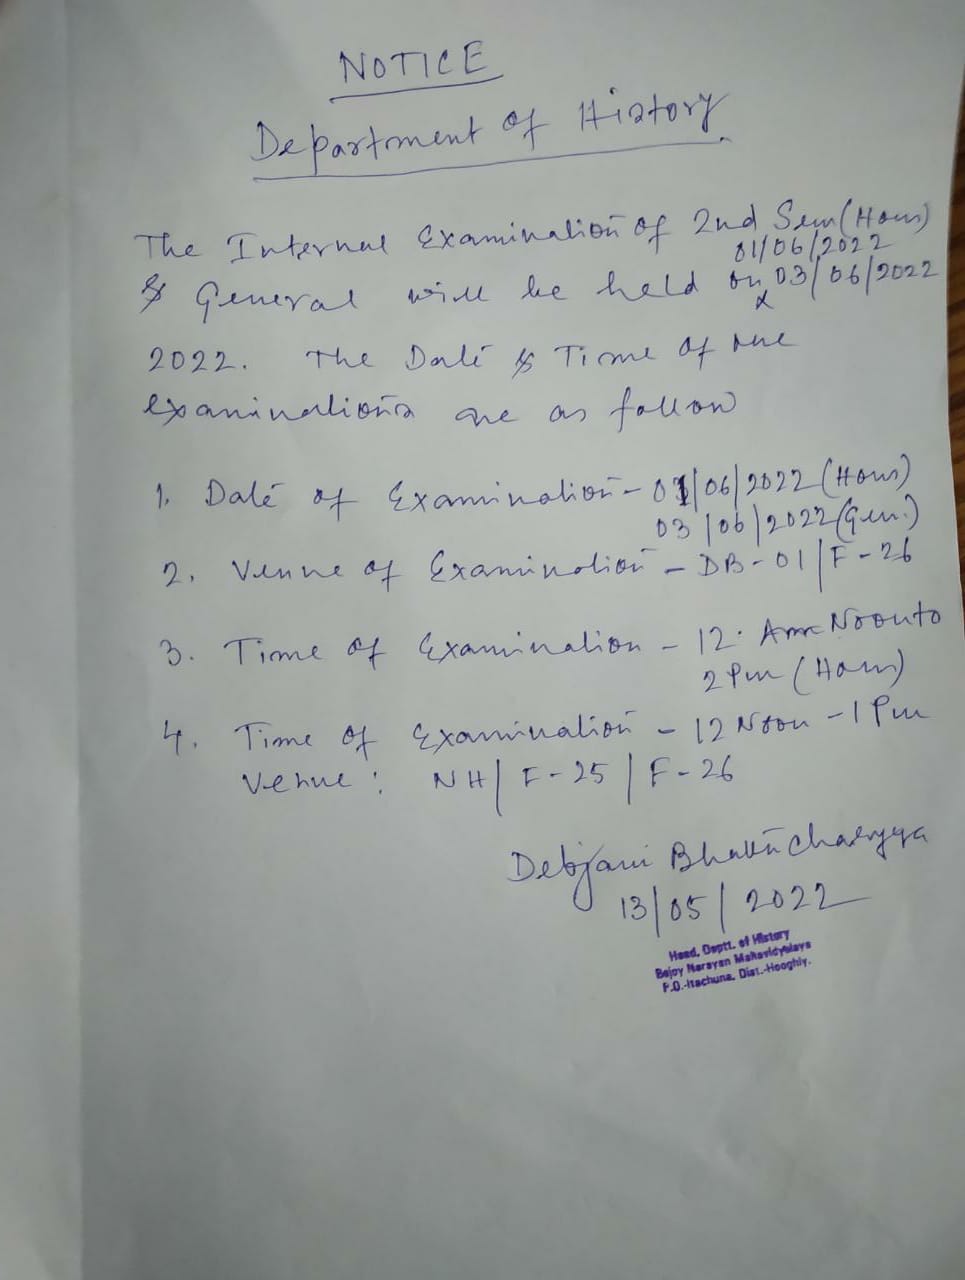 NOTICE
Department of History.
The Internal Examination of 2nd Sem (Hons)
01/06/2022
& General will be held on 03/06/2022
2022. The Date & Time of the
examinations are as follow
1. Date of Examination - 01/06/2022 (Hons)
03/06/2022 (Gen.)
2. Venue of Examination - DB-01/F-26
3. Time of Examination - 12. Noon to
2 Pm (Hons)
4. Time of Examination - 12 Noon - 1 Pm
Venue: NH/F-25/F-26
Debjani Bhattacharyya
13/05/2022
Head, Deptt. of History
Bejoy Narayan Mahavidyalaya
P.O.-Itachuna, Dist.-Hooghly.